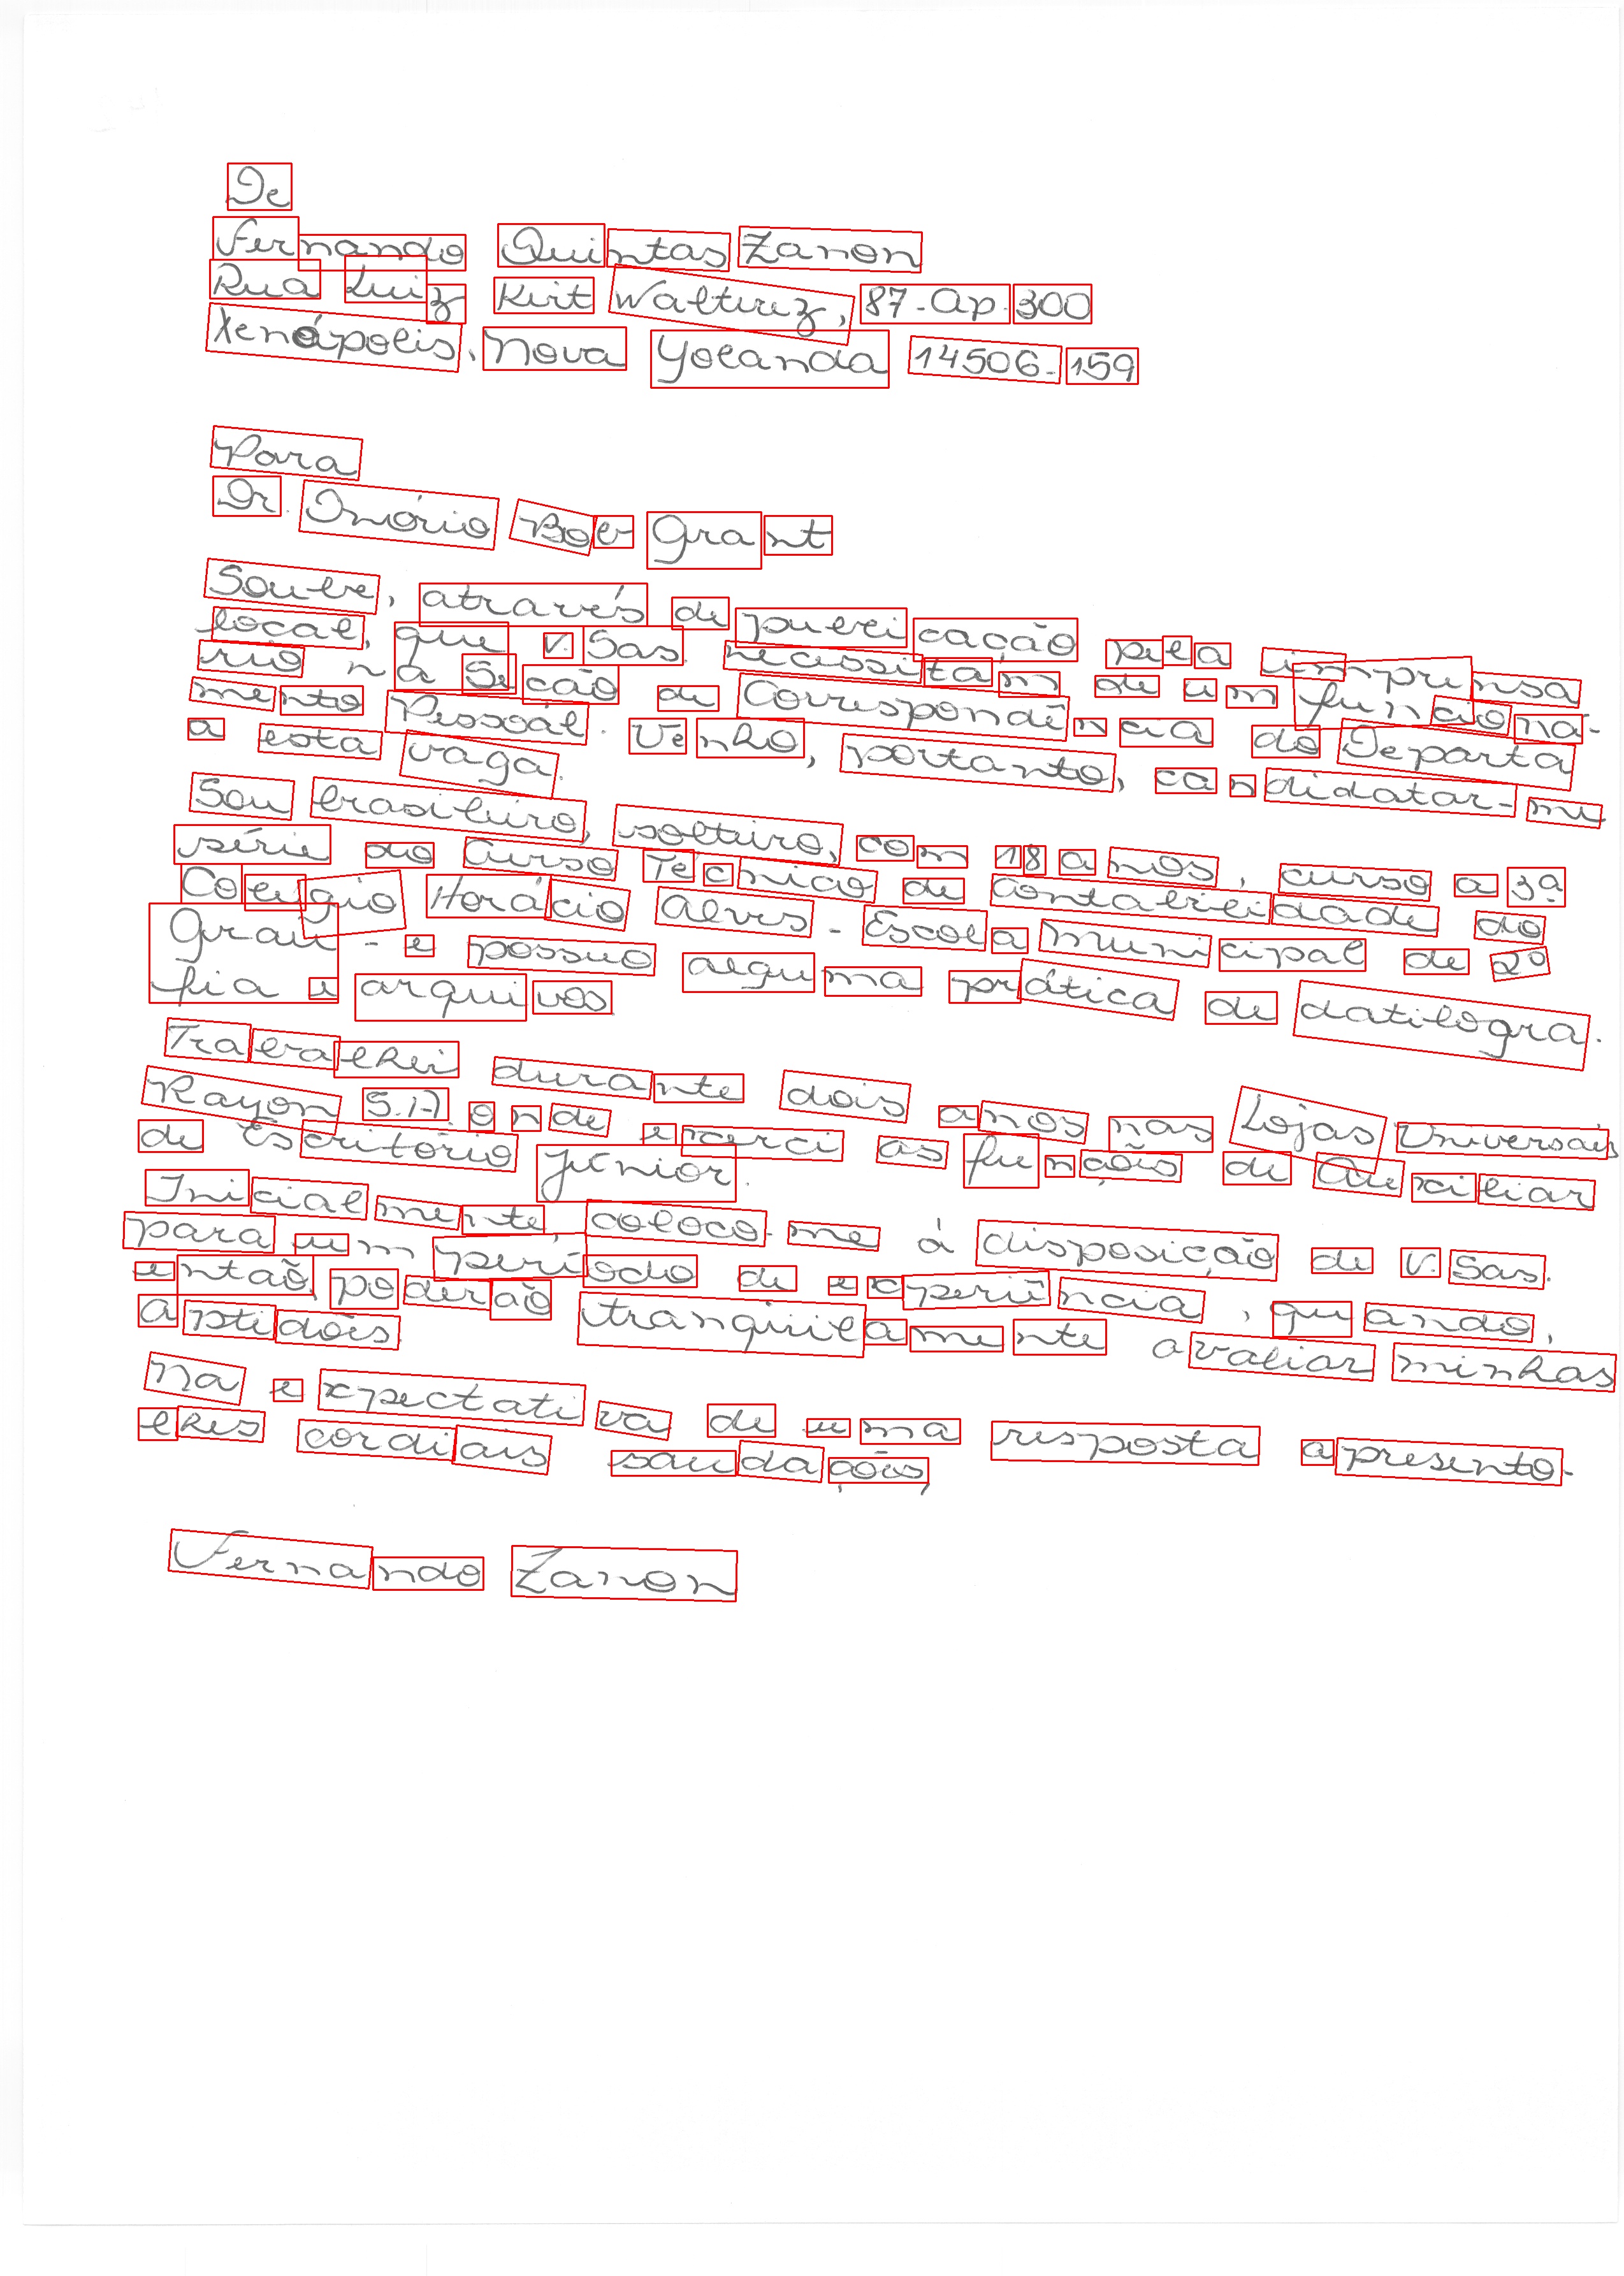 De
Fernando Quintas Zanon
Rua Luiz Kirt Walturz, 87-Ap. 300
Xenápolis, Nova Yolanda 14506-159
Para
Dr. Onório Bob Grant
Soube, através de publicação pela imprensa
local, que V. Sas. necessitam de um funciona-
rio na Seção de Correspondência do Departa
mento Pessoal. Venho, portanto, candidatar-me
a esta vaga.
Sou brasileiro, solteiro, com 18 anos, curso a 3ª
série do Curso Técnico de contabilidade do
Colégio Horácio Alves - Escola Municipal de 2º
Grau - e possuo alguma prática de datilogra.
fia e arquivos
Trabalhei durante dois anos nas Lojas Universais
Rayon S.A. onde exerci as funções de Auxiliar
de Escritório Júnior.
Inicialmente, coloco-me à disposição de V. Sas.
para um período de experiência, quando,
então, poderão tranqüilamente avaliar minhas
aptidões.
Na expectativa de uma resposta apresento-
lhes cordiais saudações,
Fernando Zanon